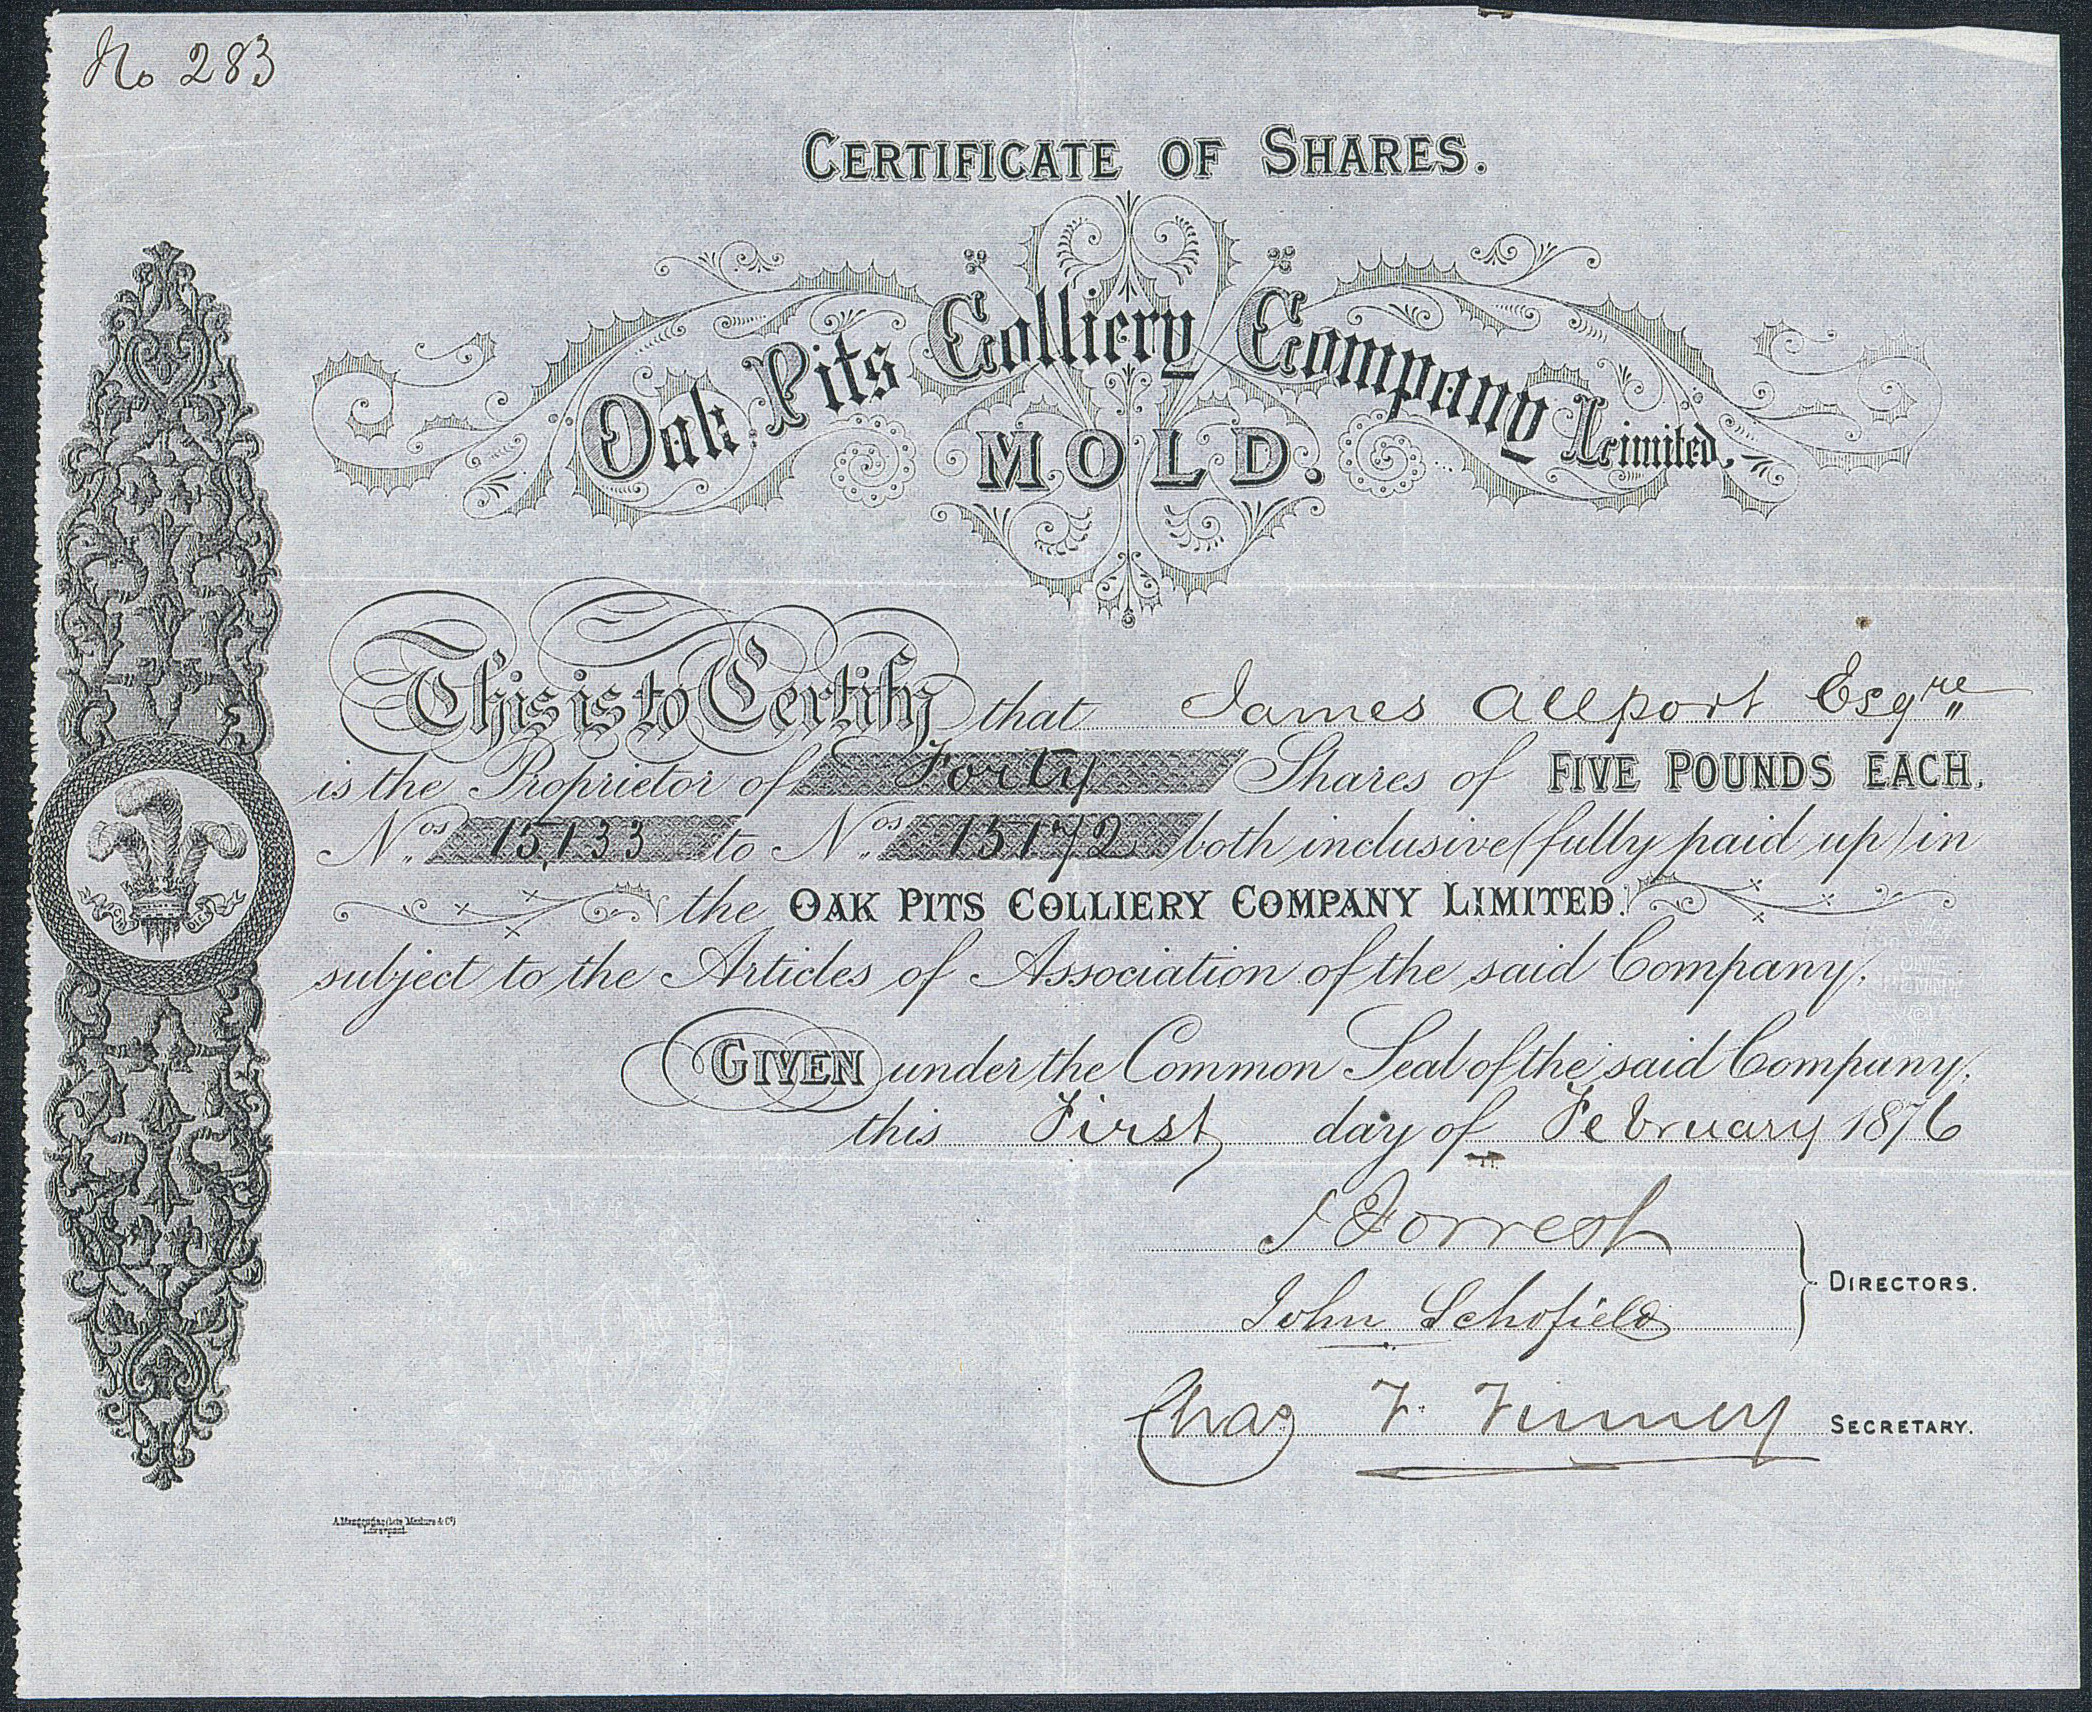 No 283
CERTIFICATE OF SHARES.
Oak Pits Colliery Company Limited,
MOLD.
This is to Certify that James Allport Esqre
is the Proprietor of Forty Shares of FIVE POUNDS EACH.
Nos. 15,133 to Nos. 15172 both inclusive (fully paid up) in
the OAK PITS COLLIERY COMPANY LIMITED.
subject to the Articles of Association of the said Company.
GIVEN under the Common Seal of the said Company,
this First day of February 1876
J Forrest
John Schofield
DIRECTORS.
Chas F. Finney SECRETARY.
Liverpool